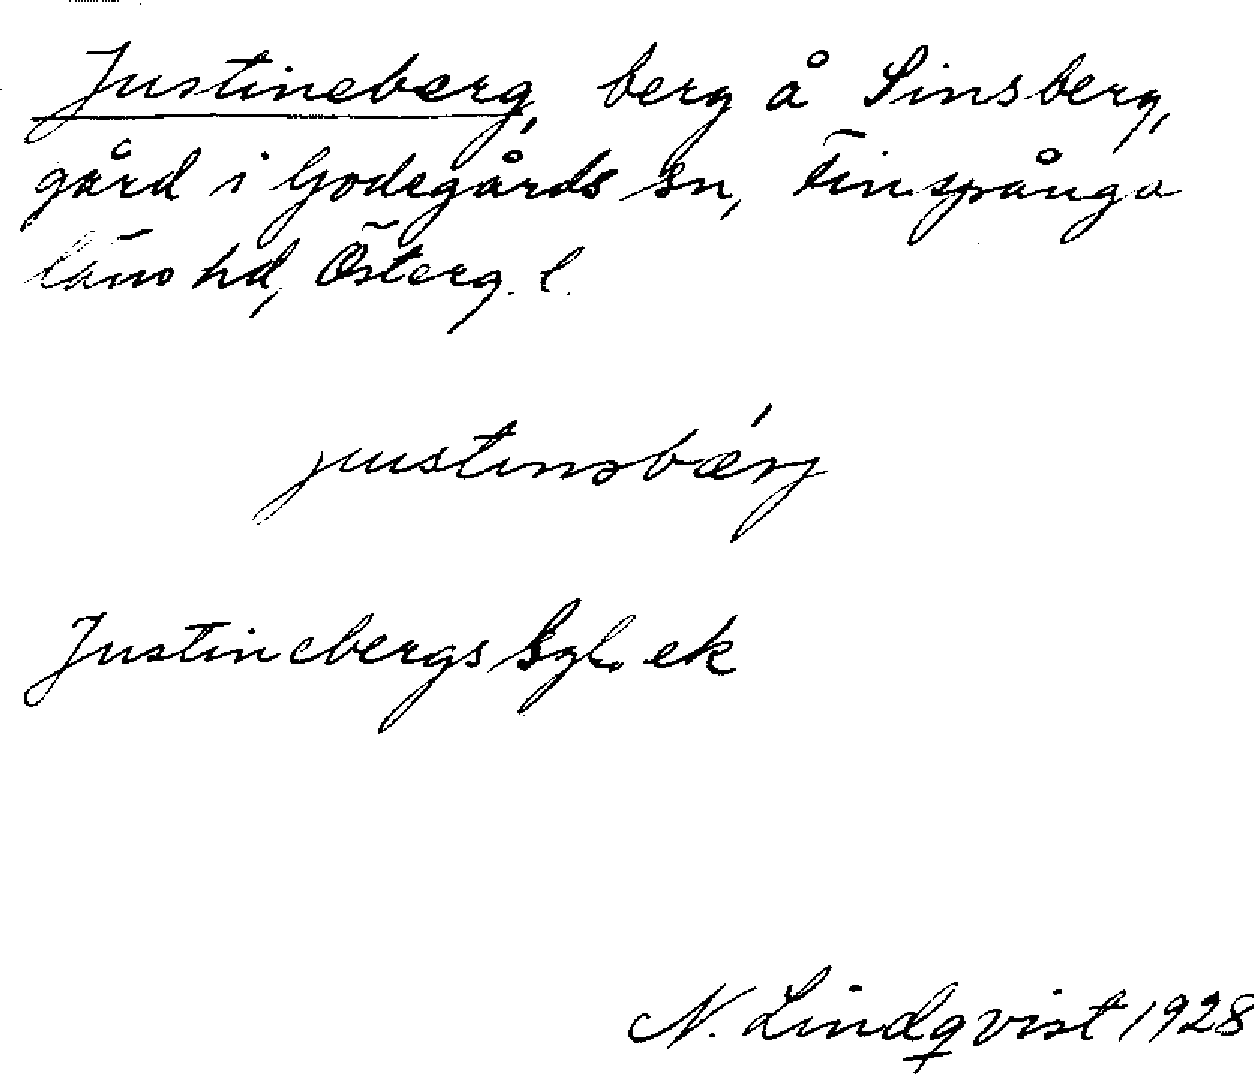 Justineberg, berg å Sinsberg,
gård i Godegårds sn, Finspånga
läns hd, Österg. l.
justinsbærj
Justinebergs ek
N. Lindqvist 1928